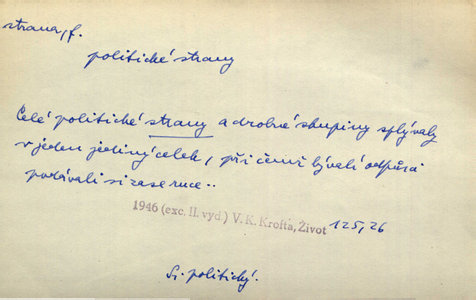 strana, f.
politické strany
Celé politické strany a drobné skupiny splývaly
v jeden jediný celek, při čemž bývalí odpůrci
podávali si zase ruce..
1946 (exc. II. vyd.) V. K. Krofta, Život 125, 26
Sr. politický.